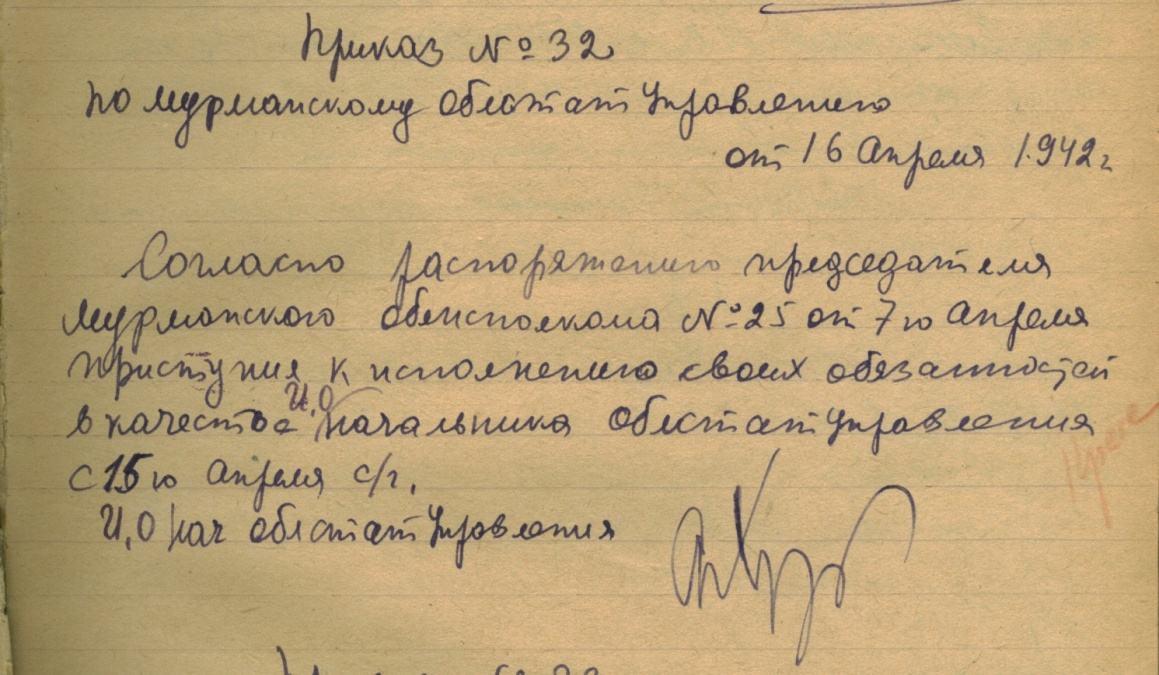 Приказ № 32
по Мурманскому Облстат Управлению
от 16 Апреля 1942 г
Согласно распоряжению председателя
Мурманского облисполкома № 25 от 7го Апреля
приступил к исполнению своих обязанностей
в качестве И.О начальника ОблстатУправления
с 15го Апреля с/г.
И.О нач облстатУправления